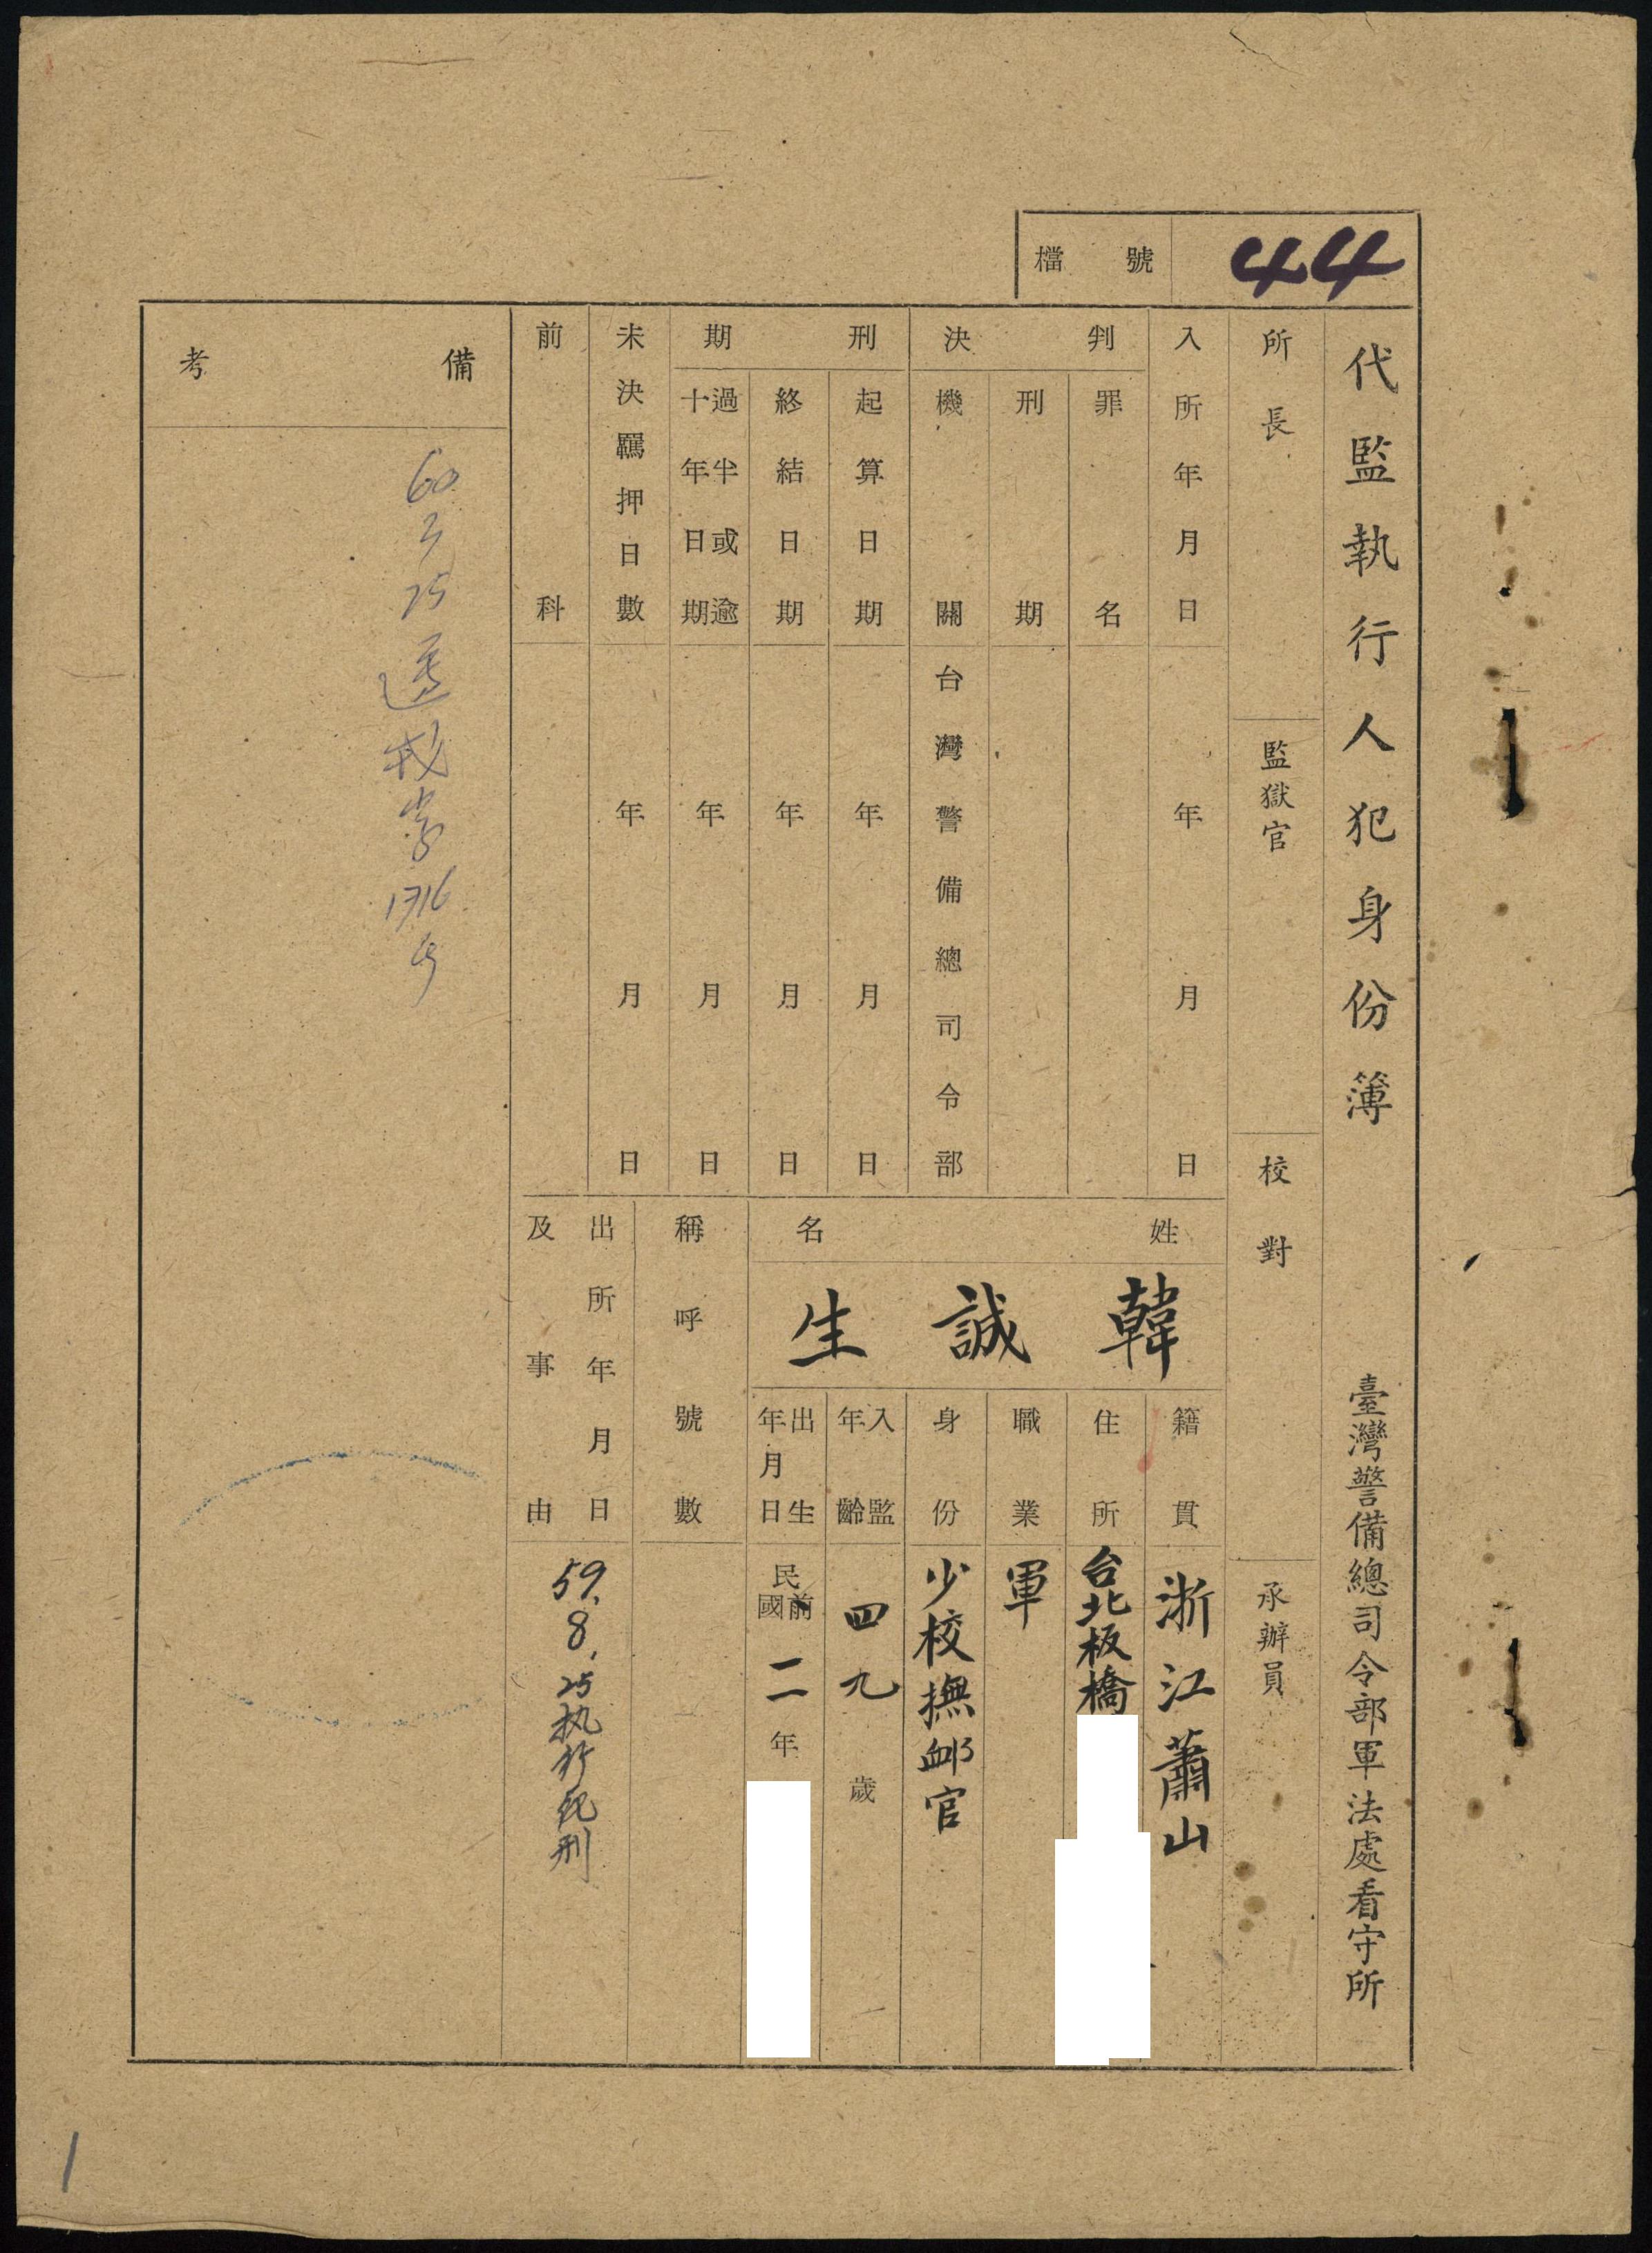 檔號 44
代監執行人犯身份簿 臺灣警備總司令部軍法處看守所
所長
監獄官
校對
承辦員
入所年月日 年 月 日
判決
罪名
刑期
機關 台灣警備總司令部
刑期
起算日期 年 月 日
終結日期 年 月 日
過半或逾十年日期 年 月 日
未決羈押日數 年 月 日
前科
姓名
韓誠生
籍貫 浙江蕭山
住所 台北板橋
職業 軍
身份 少校撫卹官
入監年齡 四九歲
出生年月日 民國前 二年
稱呼號數
出所年月日及事由 59.8.25执行死刑
備考
60
3
25
1716
号
1